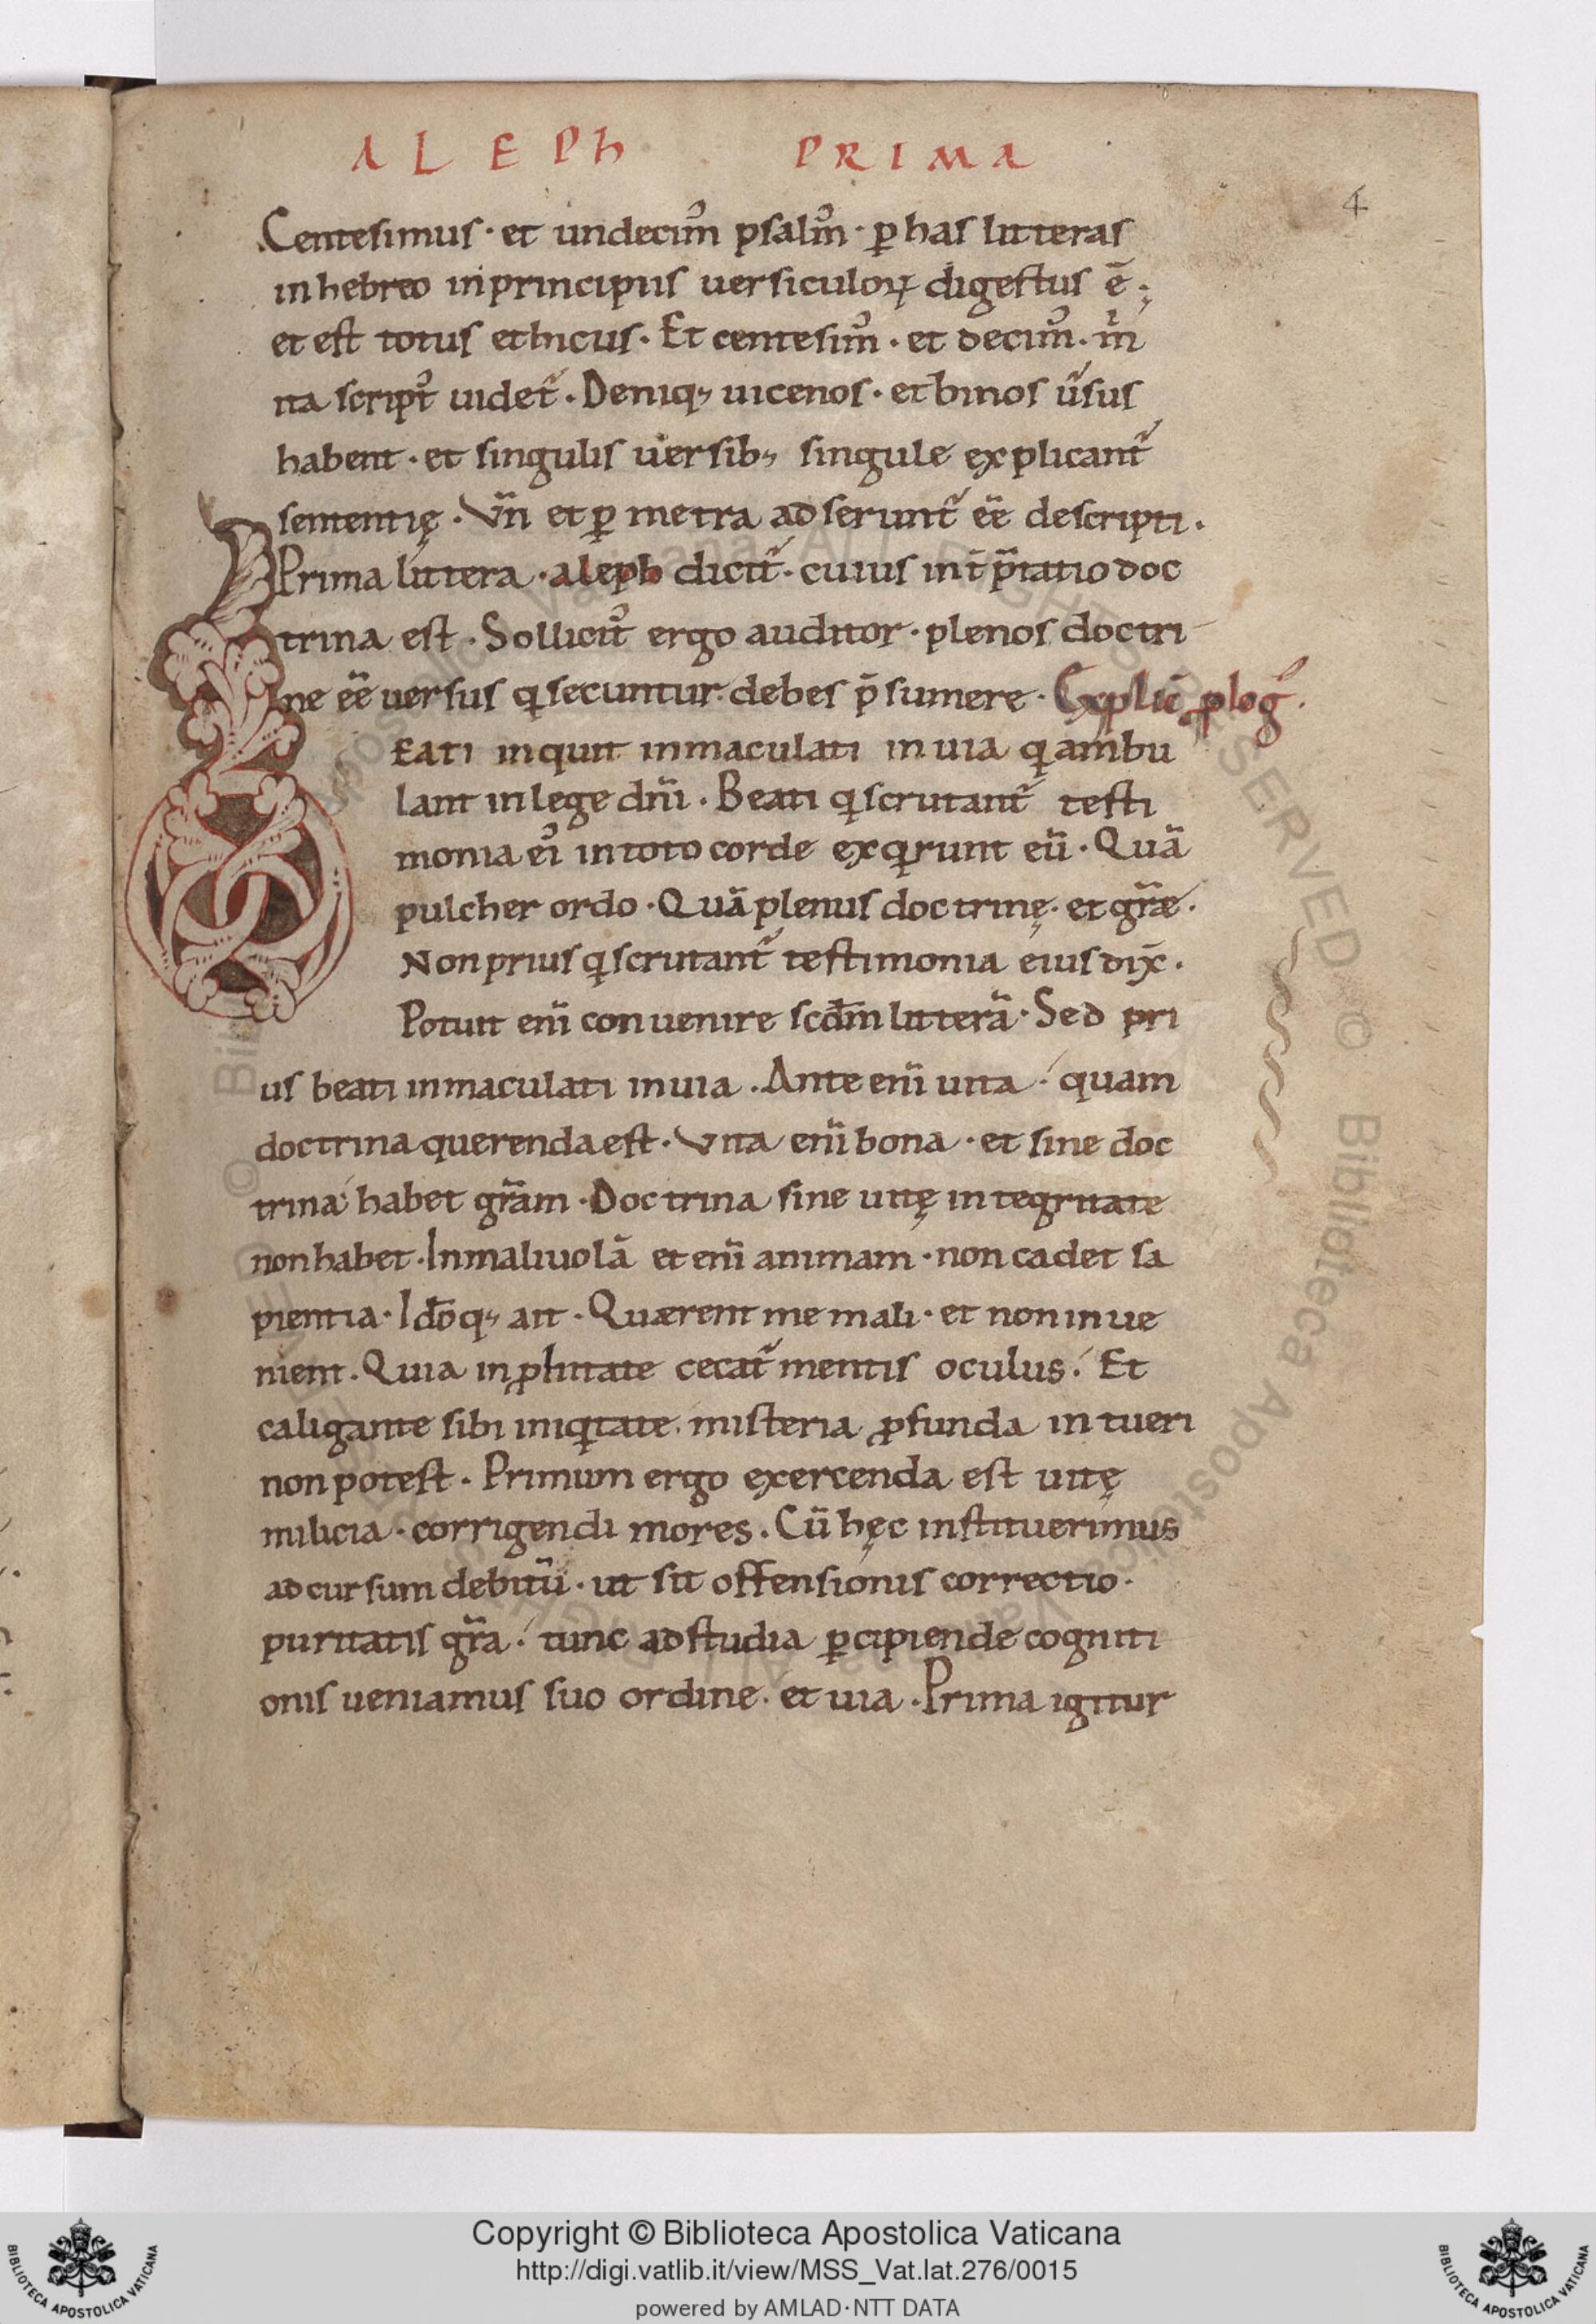 ALEPh PRIMA
4
Centesimus · et undecim̉ psalm̉ · ꝑ has litteras
in hebreo in principiis uersiculoꝝ digestus ē ;
et est totus ethicus · Et centesim̉ · et decim̉ · m̄
ita script̉ uidet̃ · Deniq; uicenos · et binos ũsus
habent · et singulis uersib; singule explicant̃
sententię · Vñ et ꝑ metra adserunt̃ eẽ descripti .
Prima littera · aleph dicit̃ · cuius int̄p̃tatio doc
trina est . Sollicit̉ ergo auditor · plenos doctri
ne eẽ uersus q secuntur debes p̄sumere · Explic̄ ꝓlog̉ .
EATI inquit inmaculati in uia q ambu
lant in lege dñi . Beati q scrutant̃ testi
monia eỉ in toto corde exqrunt eũ · Quã
pulcher ordo · Quã plenus doctrinę · et gr̃æ .
Non prius q scrutant̃ testimonia eius dix̄ .
Potuit eni᷉ conuenire scđm litterã · Sed pri
us beati inmaculati in uia . Ante eni᷉ uita · quam
doctrina querenda est . Vita eni᷉ bona · et sine doc
trina habet gr̃am · Doctrina sine uitę integritate
non habet · In maliuolā et eni᷉ animam · non cadet sa
pientia · Iđoq; ait · Quærent me mali · et non inue
nient . Quia in ꝓbitate cecat̃ mentis oculus . Et
caligante sibi iniqtate · misteria ꝓfunda intueri
non potest . Primum ergo exercenda est uitę
milicia · corrigendi mores . Cũ hęc instituerimus
ad cursum debitũ · ut sit offensionis correctio ·
puritatis gr̃a . tunc ad studia ꝑcipiende cogniti
onis ueniamus suo ordine · et uia · Prima igitur
Copyright © Biblioteca Apostolica Vaticana
http://digi.vatlib.it/view/MSS_Vat.lat.276/0015
powered by AMLAD·NTT DATA
BIBLIOTECA APOSTOLICA VATICANA
BIBLIOTECA APOSTOLICA VATICANA